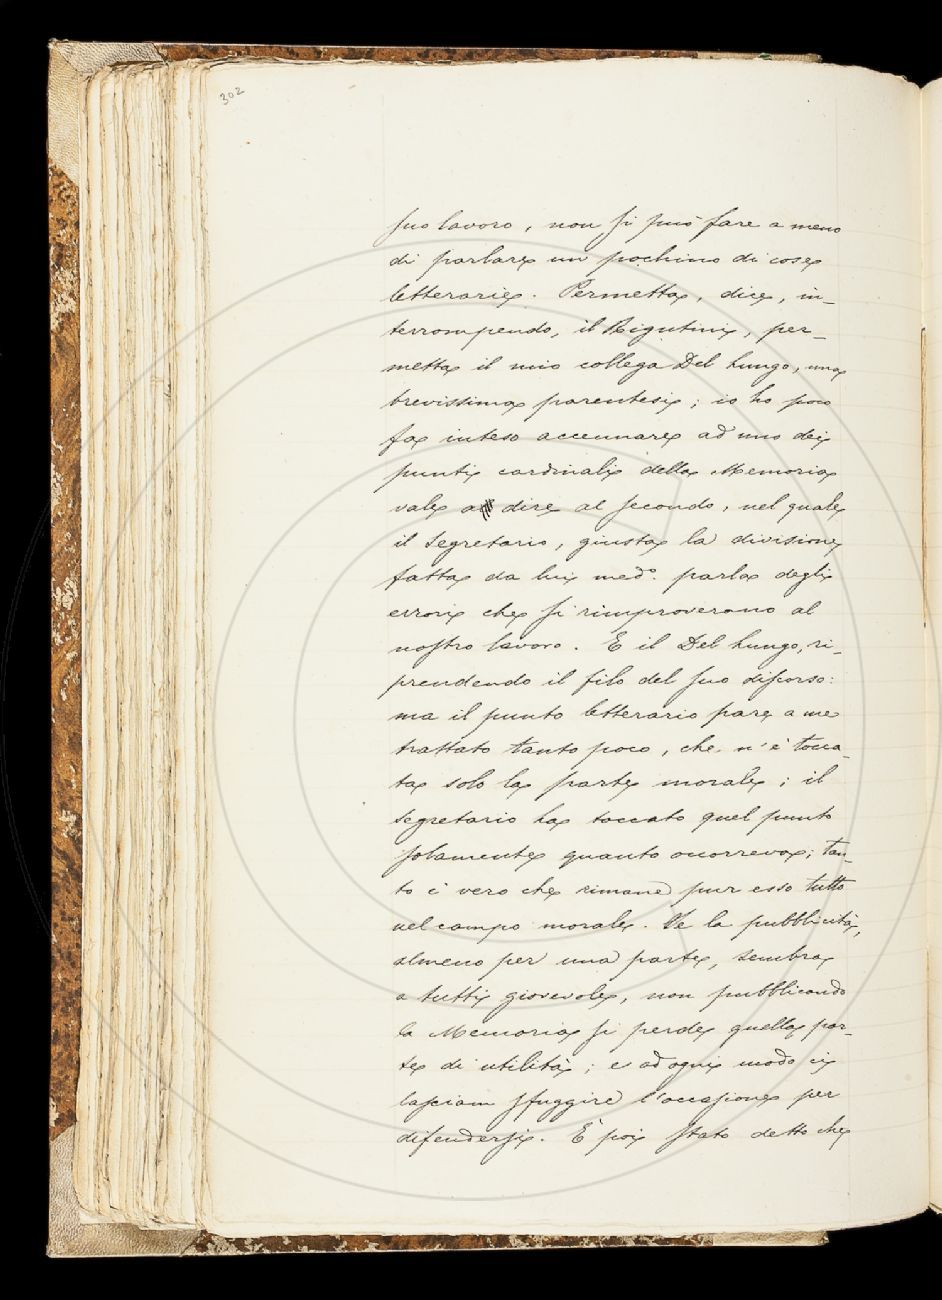 302
suo lavoro, non si può fare a meno
di parlare un pochino di cose
letterarie. Permetta, dice, in-
terrompendo, il Rigutini, per-
metta il mio collega Del Lungo, una
brevissima parentesi; io ho poco
fa inteso accennare ad uno dei
punti cardinali della Memoria
vale a dire al secondo, nel quale
il Segretario, giusta la divisione
fatta da lui medo. parla degli
errori che si rimproverano al
nostro lavoro. E il Del Lungo, ri-
prendendo il filo del suo discorso:
ma il punto letterario pare a me
trattato tanto poco, che n'è tocca-
ta solo la parte morale; il
Segretario ha toccato quel punto
solamente quanto occorreva; tan-
to è vero che rimane pur esso tutto
nel campo morale. Se la pubblicità,
almeno per una parte, sembra
a tutti giovevole, non pubblicando
la Memoria si perde quella par-
te di utilità; e ad ogni modo ci
lasciam sfuggire l'occasione per
difendersi. È poi stato detto che